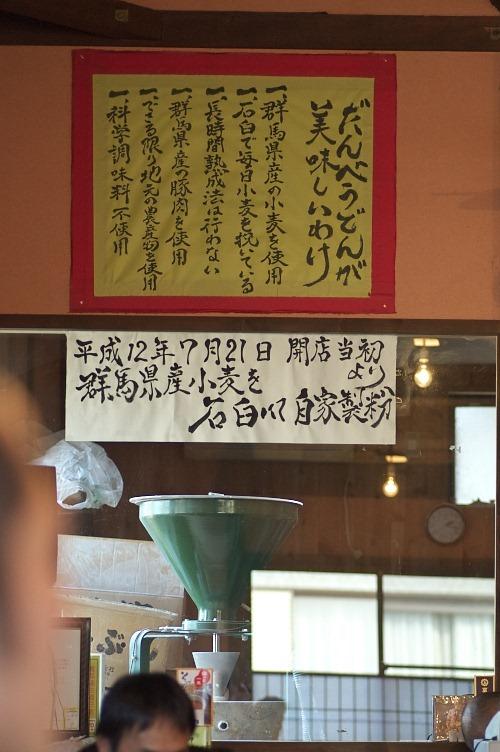 だんべうどんが
美味しいわけ
一、群馬県産の小麦を使用
一、石臼で毎日小麦を挽いている
一、長時間熟成法は行わない
一、群馬県産の豚肉を使用
一、できる限り地元の農産物を使用
一、科学調味料不使用
平成12年7月21日 開店当初より
群馬県産小麦を
石臼にて自家製粉